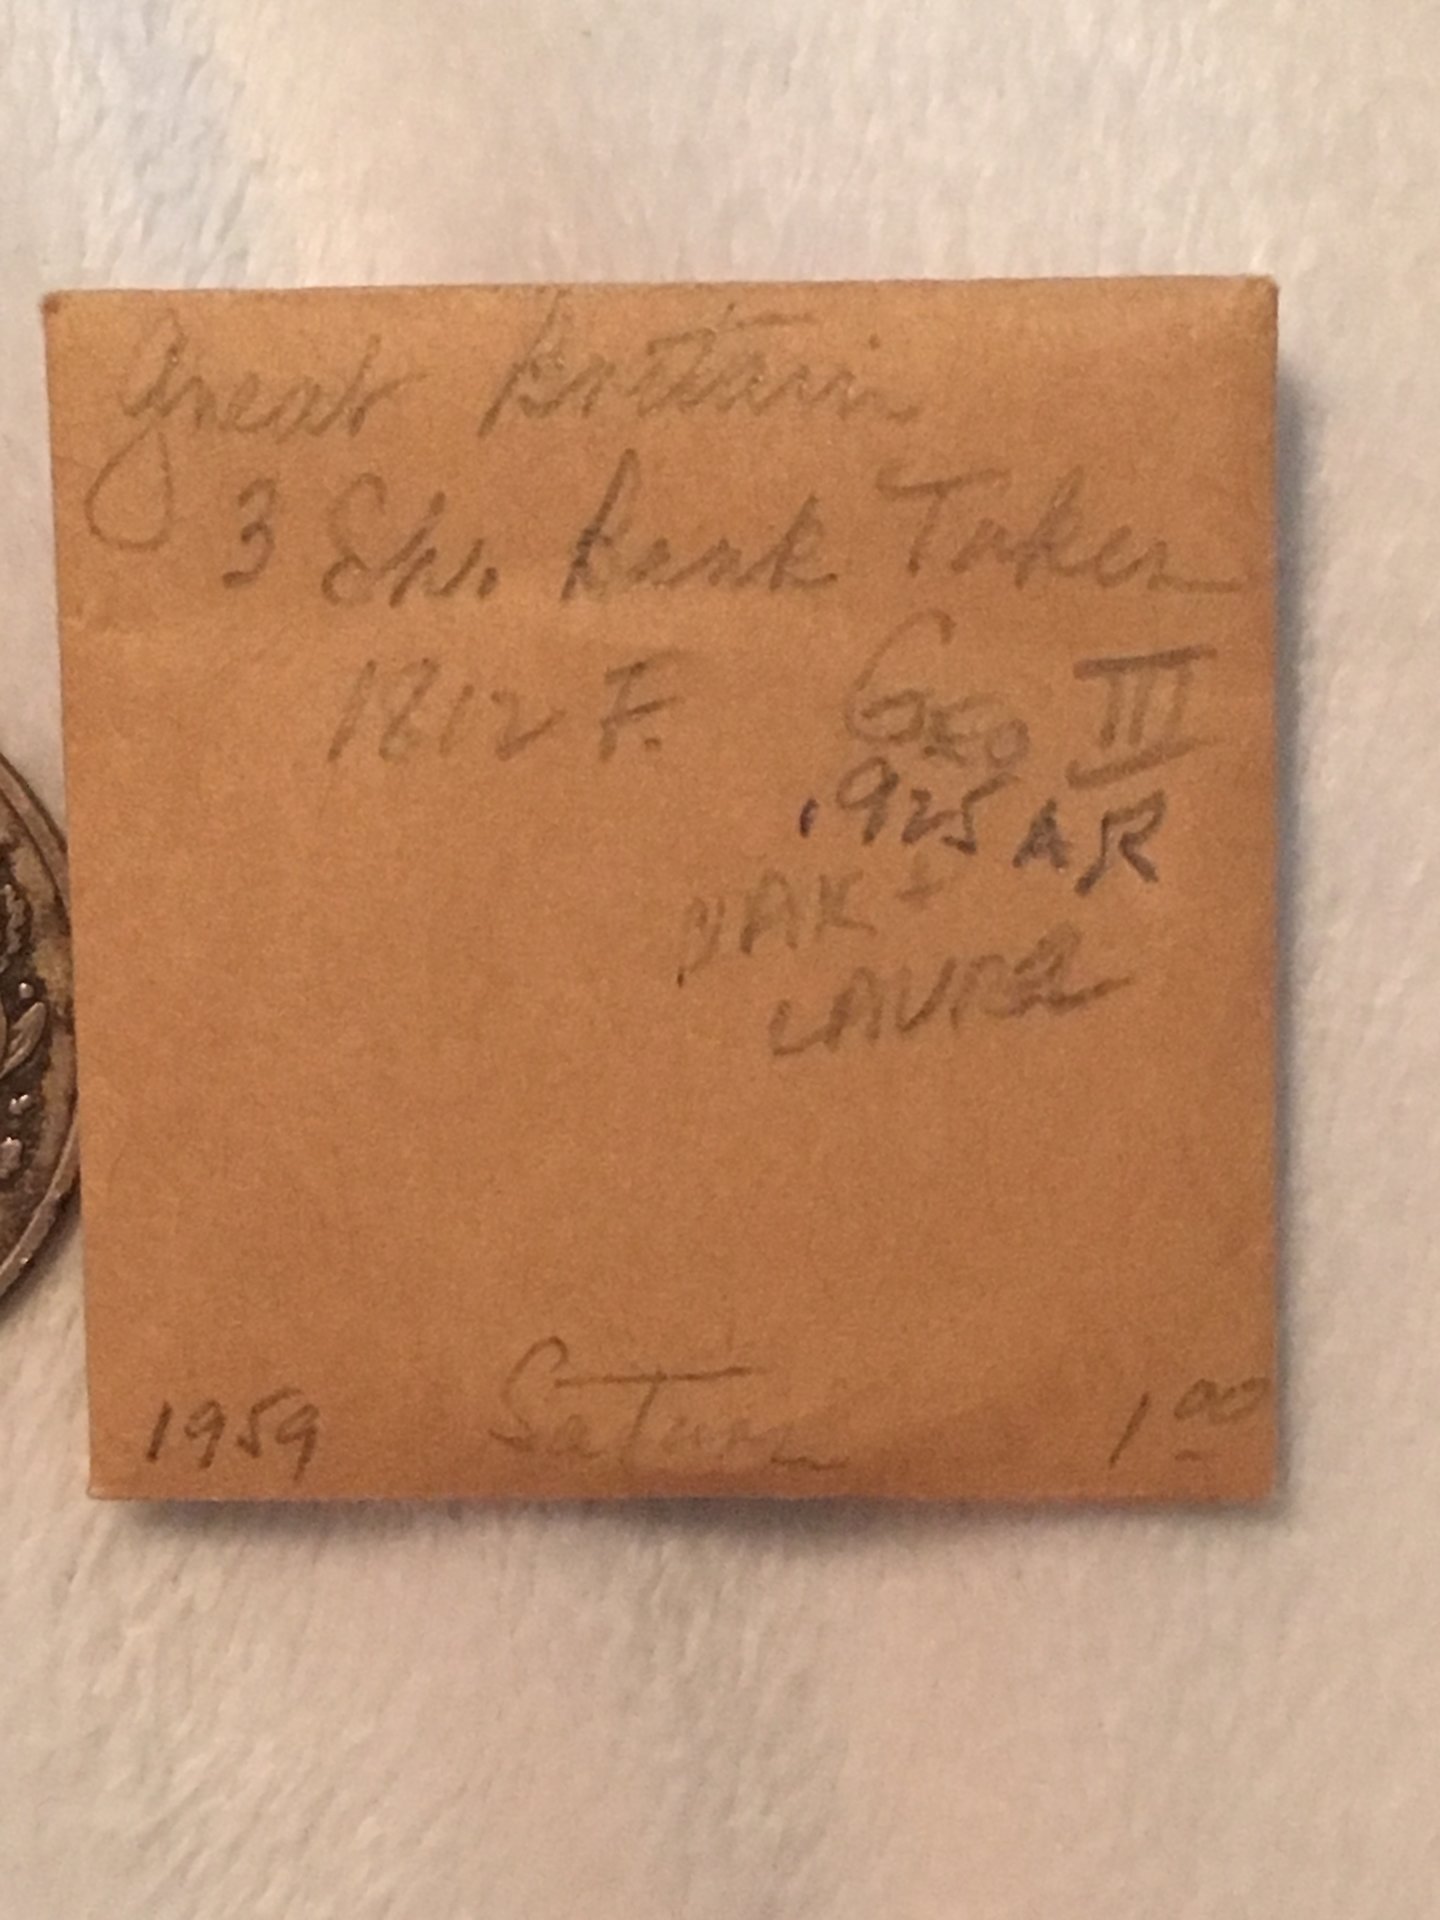 Great Britain
3 Sh. Bank Token
1812 F. GEO III
.925 AR
OAK +
LAUREL
1959 Saturn 1.00